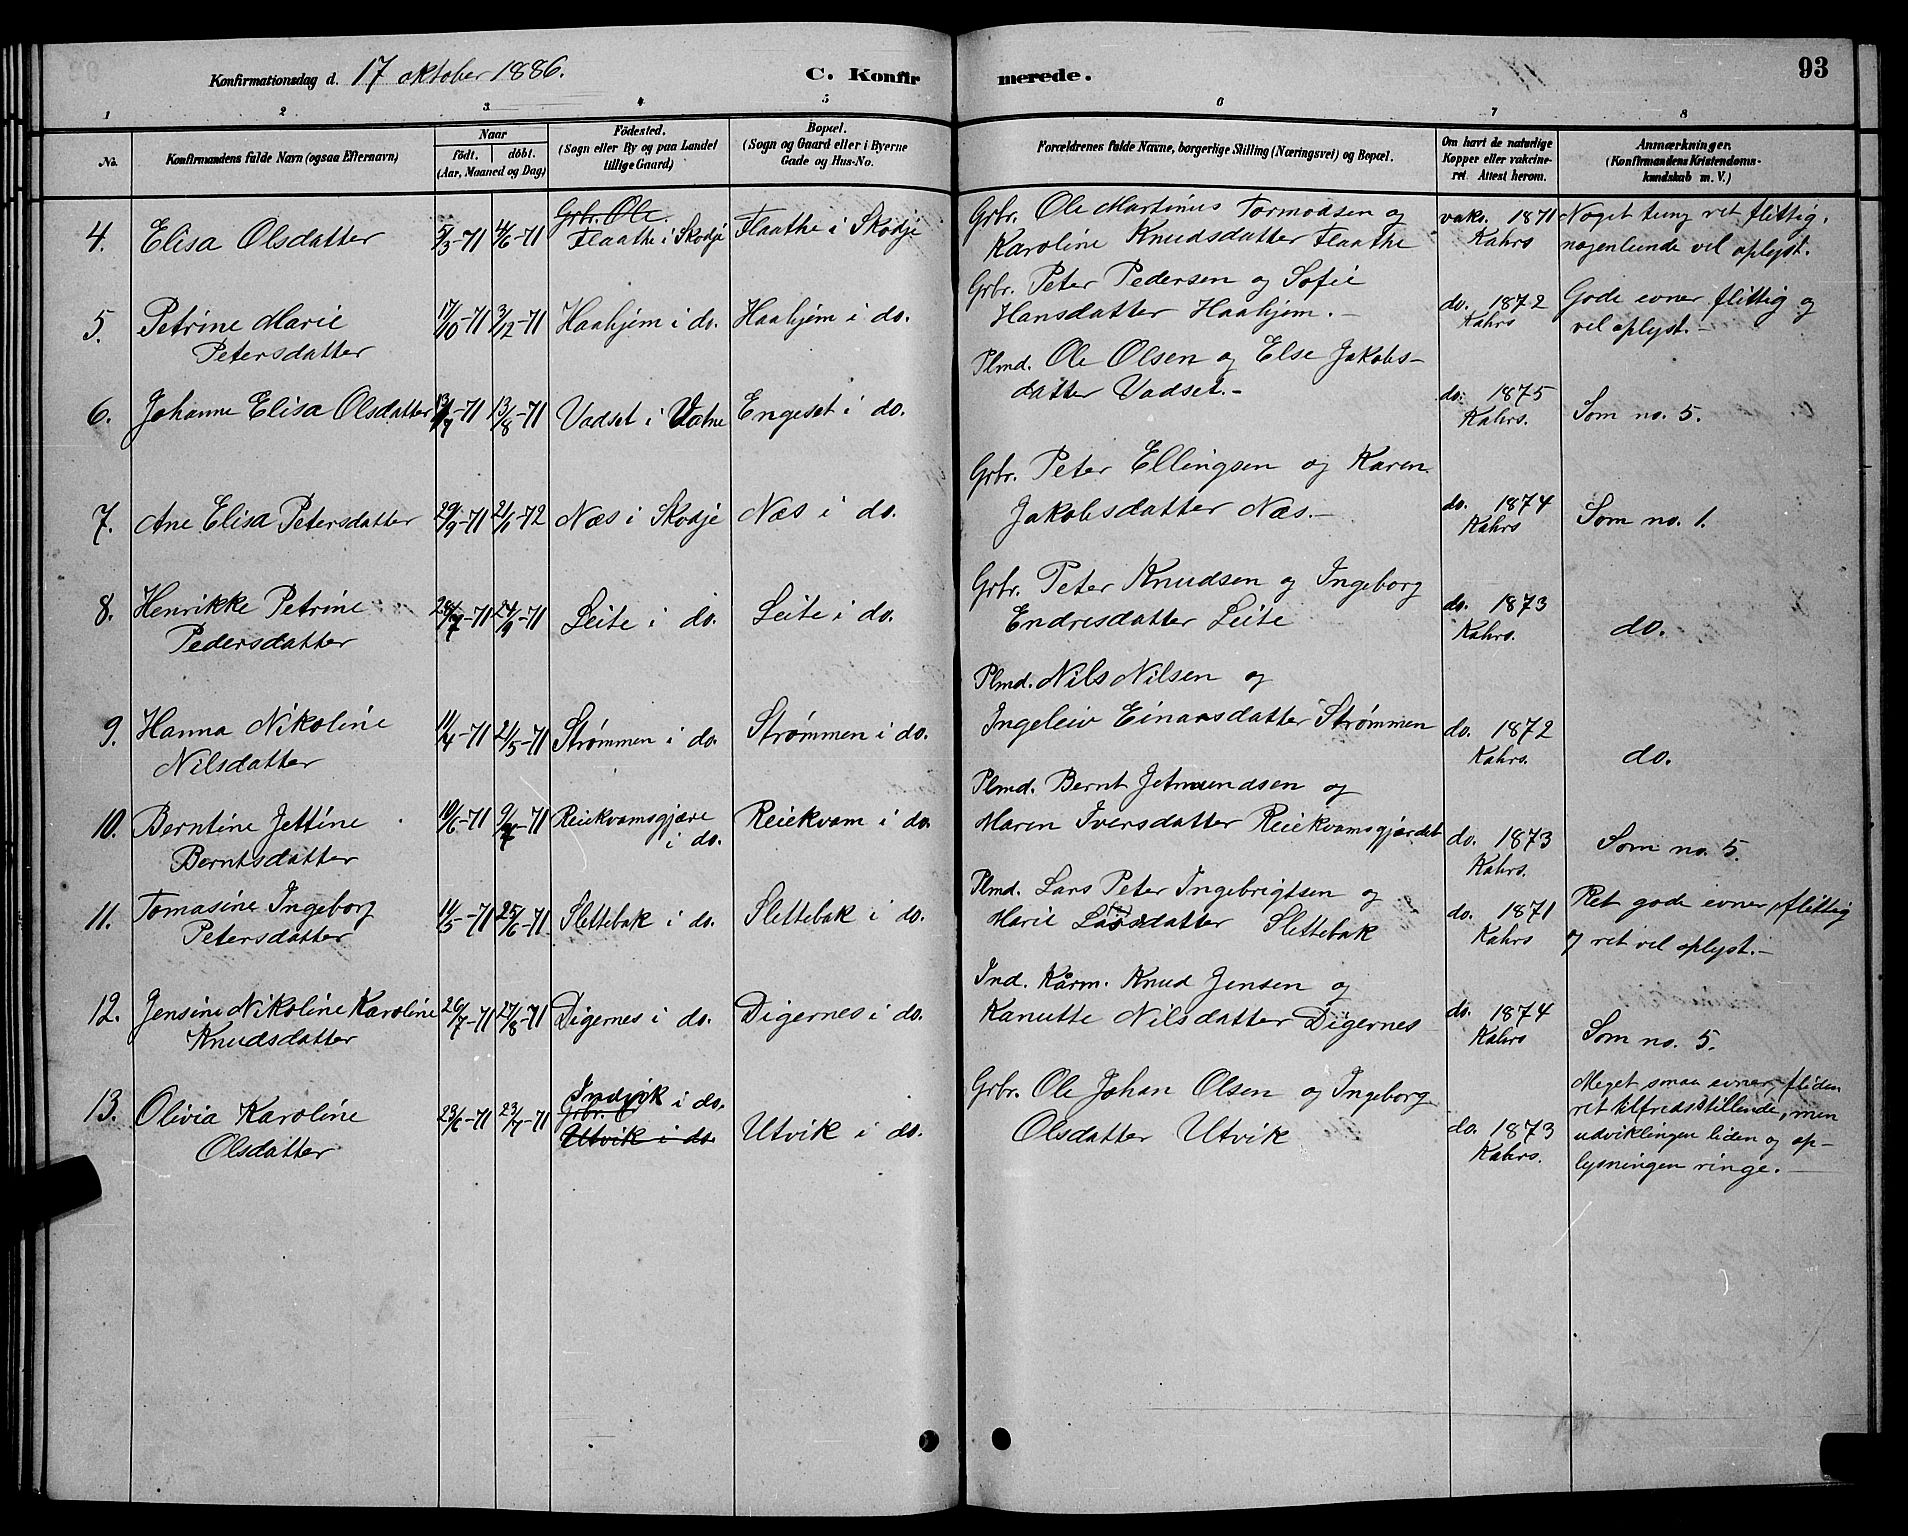 Konfirmationsdag d. 17 oktober 1886.
C. Konfirmerede.
93
1 2 3 4 5 6 7 8
No.
Konfirmandens fulde Navn (ogsaa Efternavn)
Naar
födt. döbt.
(Aar, Maaned og Dag)
Födested.
(Sogn eller By og paa Landet
tillige Gaard)
Bopæl.
(Sogn og Gaard eller i Byerne
Gade og Hus-No.
Forældrenes fulde Navne, borgerlige Stilling (Næringsvei) og Bopæl.
Om havt de naturlige
Kopper eller vakcine-
ret. Attest herom.
Anmærkninger.
(Konfirmandens Kristendoms-
kundskab m. V.)
4. Elisa Olsdatter
5/3-71 4/6-71
Grbr. Ole
Flaathe i Skodje
Flaathe i Skodje
Grbr. Ole Martinus Tormodsen og
Karoline Knudsdatter Flaathe
vaks. 1871
Kahrs
Noget tung ret flittig.
nogenlunde vel oplyst.
5. Petrine Marie
Petersdatter
17/10-71 3/12-71
Haahjem i do.
Haahjem i do.
Grbr. Peter Pedersen og Sofie
Hansdatter Haahjem.-
do. 1872
Kahrs
Gode evner flittig og
vel oplyst.-
6. Johanne Elisa Olsdatter
13/7-71 13/8-71
Vadset i Vatne
Engeset i do.
Plmd. Ole Olsen og Else Jakobs-
datter Vadset.-
do. 1875
Kahrs.
Som no. 5.
7. Ane Elisa Petersdatter
29/9-71 21/1-72
Næs i Skodje
Næs i do.
Grbr. Peter Ellingsen og Karen
Jakobsdatter Næs.-
do. 1874
Kahrs
Som no. 1.
8. Henrikke Petrine
Pedersdatter
24/9-71
Leite i do.
Leite i do.
Grbr. Peter Knudsen og Ingeborg
Endresdatter Leite
do. 1873
Kahrs.
do.
9. Hanna Nikoline
Nilsdatter
11/4-71 21/5-71
Strømmen i do.
Strømmen i do.
Plmd. Nils Nilsen og
Ingeleiv Einarsdatter Strømmen
do. 1872
Kahrs.
do.
10. Berntine Jettine
Berntsdatter
10/6-71 9/7-71
Reiekvamsgjære
i do.
Reiekvam i do.
Plmd. Bernt Jetmundsen og
Maren Iversdatter Reiekvamsgjærdet
do. 1873
Kahrs.
Som no. 5.
11. Tomasine Ingeborg
Petersdatter
11/5-71 25/6-71
Slettebak i do.
Slettebak i do.
Plmd. Lars Peter Ingebrigtsen og
Marie Larsdatter Slettebak
do. 1871
Kahrs
Ret gode evner, flittig
og ret vel oplyst.-
12. Jensine Nikoline Karoline
Knudsdatter
26/7-71 27/8-71
Digernes i do.
Digernes i do.
Ind. Kårm. Knud Jensen og
Kanutte Nilsdatter Digernes
do. 1874
Kahrs
Som no. 5.
13. Olivia Karoline
Olsdatter
23/6-71 23/7-71
Indvik i do.
Grbr. O
Utvik i do.
Utvik i do.
Grbr. Ole Johan Olsen og Ingeborg
Olsdatter Utvik
do. 1873
Kahrs.
Meget smaa evner, fliden
ret tilfredsstillende, men
udviklingen liden og op-
lysningen ringe.-